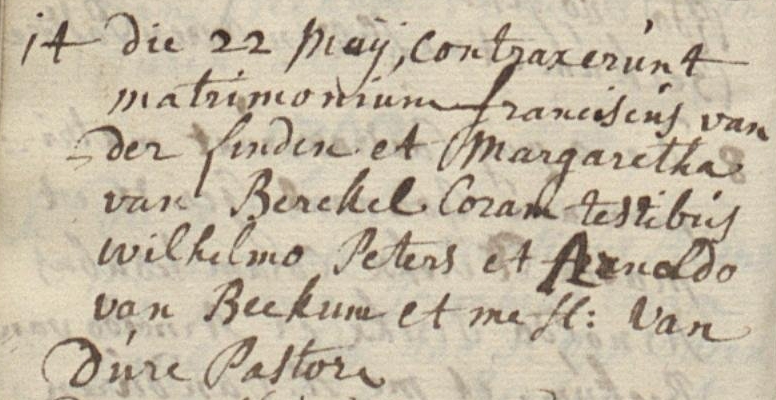 14 die 22 Maij, contraxerunt
matrimonium franciscus van
der linden et Margaretha
van Berckel Coram testibus
Wilhelmo Peters et Arnoldo
van Beekum et me H: Van
Dúre Pastore